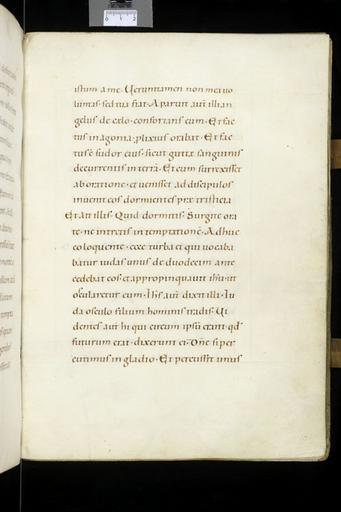 istum a me. Ueruntamen non mea uo
luntas sed tua fiat. Apparuit aut̄ illi an
gelus de cęlo confortans eum. Et fac
tus in agonia prolixius orabat. Et fac
tus ē sudor eius sicut guttę sanguinis
decurrentis in terrā. Et cum surrexisset
ab oratione et uenisset ad discipulos
inuenit eos dormientes prę tristicia
Et ait illis. Quid dormitis? Surgite ora
te ne intretis in temptationē. Adhuc
eo loquente ecce turba et qui uocaba
batur iudas unus de duodecim ante
cedebat eos et appropinquauit ih̄u ut
oscularetur eum. Ih̄s aut̄ dixit illi. Iu
da osculo filium hominis tradis? Ui
dentes aut̄ hi qui circum ipsū erant qd̄
futurum erat dixerunt ei. Dn̄e si per
cutimus in gladio. Et percussit unus